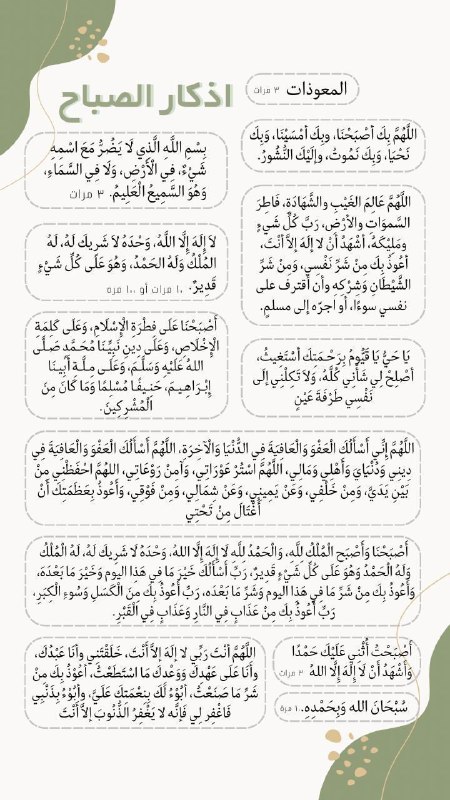 اذكار الصباح
المعوذات ٣ مرات
اللَّهُمَّ بِكَ أَصْبَحْنَا، وبِكَ أَمْسَيْنَا، وَبِكَ
نَحْيَا، وَبِكَ نَمُوتُ، وإلَيْكَ النُّشُورُ.
بِسْمِ اللَّه الَّذِي لَا يَضُرُّ مَعَ اسْمِهِ
شَيْءٌ، فِي الْأَرْضِ، وَلَا فِي السَّمَاءِ،
وَهُوَ السَّمِيعُ الْعَلِيمُ. ٣ مرات
اللَّهُمَّ عَالِمَ الغَيْبِ والشَّهَادَةِ، فَاطِرَ
السَّمَوَاتِ والأَرْضِ، رَبَّ كُلِّ شَيْءٍ
ومَلِيْكَهُ، أَشْهَدُ أنْ لا إِلَهَ إِلاَّ أنْتَ،
أَعُوذُ بِكَ مِنْ شَرِّ نَفْسِي، وَمِنْ شَرِّ
الشَّيْطَانِ وَشِرْكِهِ وأن أقترف على
نفسي سوءًا، أو أجرّه إلى مسلمٍ.
لاَ إِلَهَ إِلَّا اللَّهُ، وَحْدَهُ لاَ شَرِيكَ لَهُ، لَهُ
المُلْكُ وَلَهُ الحَمْدُ، وَهُوَ عَلَى كُلِّ شَيْءٍ
قَدِيرٌ. ١٠ مرات أو ١٠٠ مره
أَصْبَحْنَا عَلَى فِطْرَةِ الإِسْلَامِ، وَعَلَى كَلِمَةِ
الإِخْلَاصِ، وَعَلَى دِينِ نَبِيِّنَا مُحَمَّدٍ صَلَّى
اللهُ عَلَيْهِ وَسَلَّمَ، وَعَلَى مِلَّةِ أَبِينَا
إِبْرَاهِيمَ، حَنِيفًا مُسْلِمًا وَمَا كَانَ مِنَ
الْمُشْرِكِينَ.
يَا حَيُّ يَا قَيُّومُ بِرَحْمَتِكَ أَسْتَغِيثُ،
أَصْلِحْ لِي شَأْنِي كُلَّهُ، وَلاَ تَكِلْنِي إِلَى
نَفْسِي طَرْفَةَ عَيْنٍ
اللَّهُمَّ إِنِّي أَسْأَلُكَ العَفْوَ وَالْعَافِيَةَ فِي الدُّنْيَا وَالْآخِرَةِ، اللَّهُمَّ أَسْأَلُكَ الْعَفْوَ وَالْعَافِيَةَ فِي
دِينِي وَدُنْيَايَ وَأَهْلِي وَمَالِي، اللَّهُمَّ اسْتُرْ عَوْرَاتِي، وَآمِنْ رَوْعَاتِي، اللهُمَّ احْفَظْنِي مِنْ
بَيْنِ يَدَيَّ، وَمِنْ خَلْفِي، وَعَنْ يَمِينِي، وَعَنْ شِمَالِي، وَمِنْ فَوْقِي، وَأَعُوذُ بِعَظَمَتِكَ أَنْ
أُغْتَالَ مِنْ تَحْتِي
أَصْبَحْنَا وَأَصْبَحَ الْمُلْكُ لِلَّهِ، وَالْحَمْدُ لِلَّهِ لَا إِلَهَ إِلَّا اللهُ، وَحْدَهُ لَا شَرِيكَ لَهُ، لَهُ الْمُلْكُ
وَلَهُ الْحَمْدُ وَهُوَ عَلَى كُلِّ شَيْءٍ قَدِيرٌ، رَبِّ أَسْأَلُكَ خَيْرَ مَا فِي هَذَا اليوم وَخَيْرَ مَا بَعْدَهُ،
وَأَعُوذُ بِكَ مِنْ شَرِّ مَا فِي هَذَا اليوم وَشَرِّ مَا بَعْدَهُ، رَبِّ أَعُوذُ بِكَ مِنَ الْكَسَلِ وَسُوءِ الْكِبَرِ،
رَبِّ أَعُوذُ بِكَ مِنْ عَذَابٍ فِي النَّارِ وَعَذَابٍ فِي الْقَبْرِ.
أَصْبَحْتُ أُثْنِي عَلَيْكَ حَمْدًا
وَأَشْهَدُ أَنْ لَا إِلَهَ إِلَّا اللهُ ٣ مرات
سُبْحَانَ الله وَبِحَمْدِهِ. ١٠٠ مرة
اللَّهُمَّ أَنْتَ رَبِّي لا إِلَهَ إِلاَّ أَنْتَ، خَلَقْتَنِي وأَنَا عَبْدُكَ،
وأَنَا عَلَى عَهْدِكَ وَوَعْدِكَ مَا اسْتَطَعْتُ، أَعُوْذُ بِكَ مِنْ
شَرِّ مَا صَنَعْتُ، أَبُوْءُ لَكَ بِنِعْمَتِكَ عَلَيَّ، وأَبُوْءُ بِذَنْبِي
فَاغْفِر لِي فَإِنَّه لا يَغْفِرُ الذُّنُوبَ إِلاَّ أَنْتَ